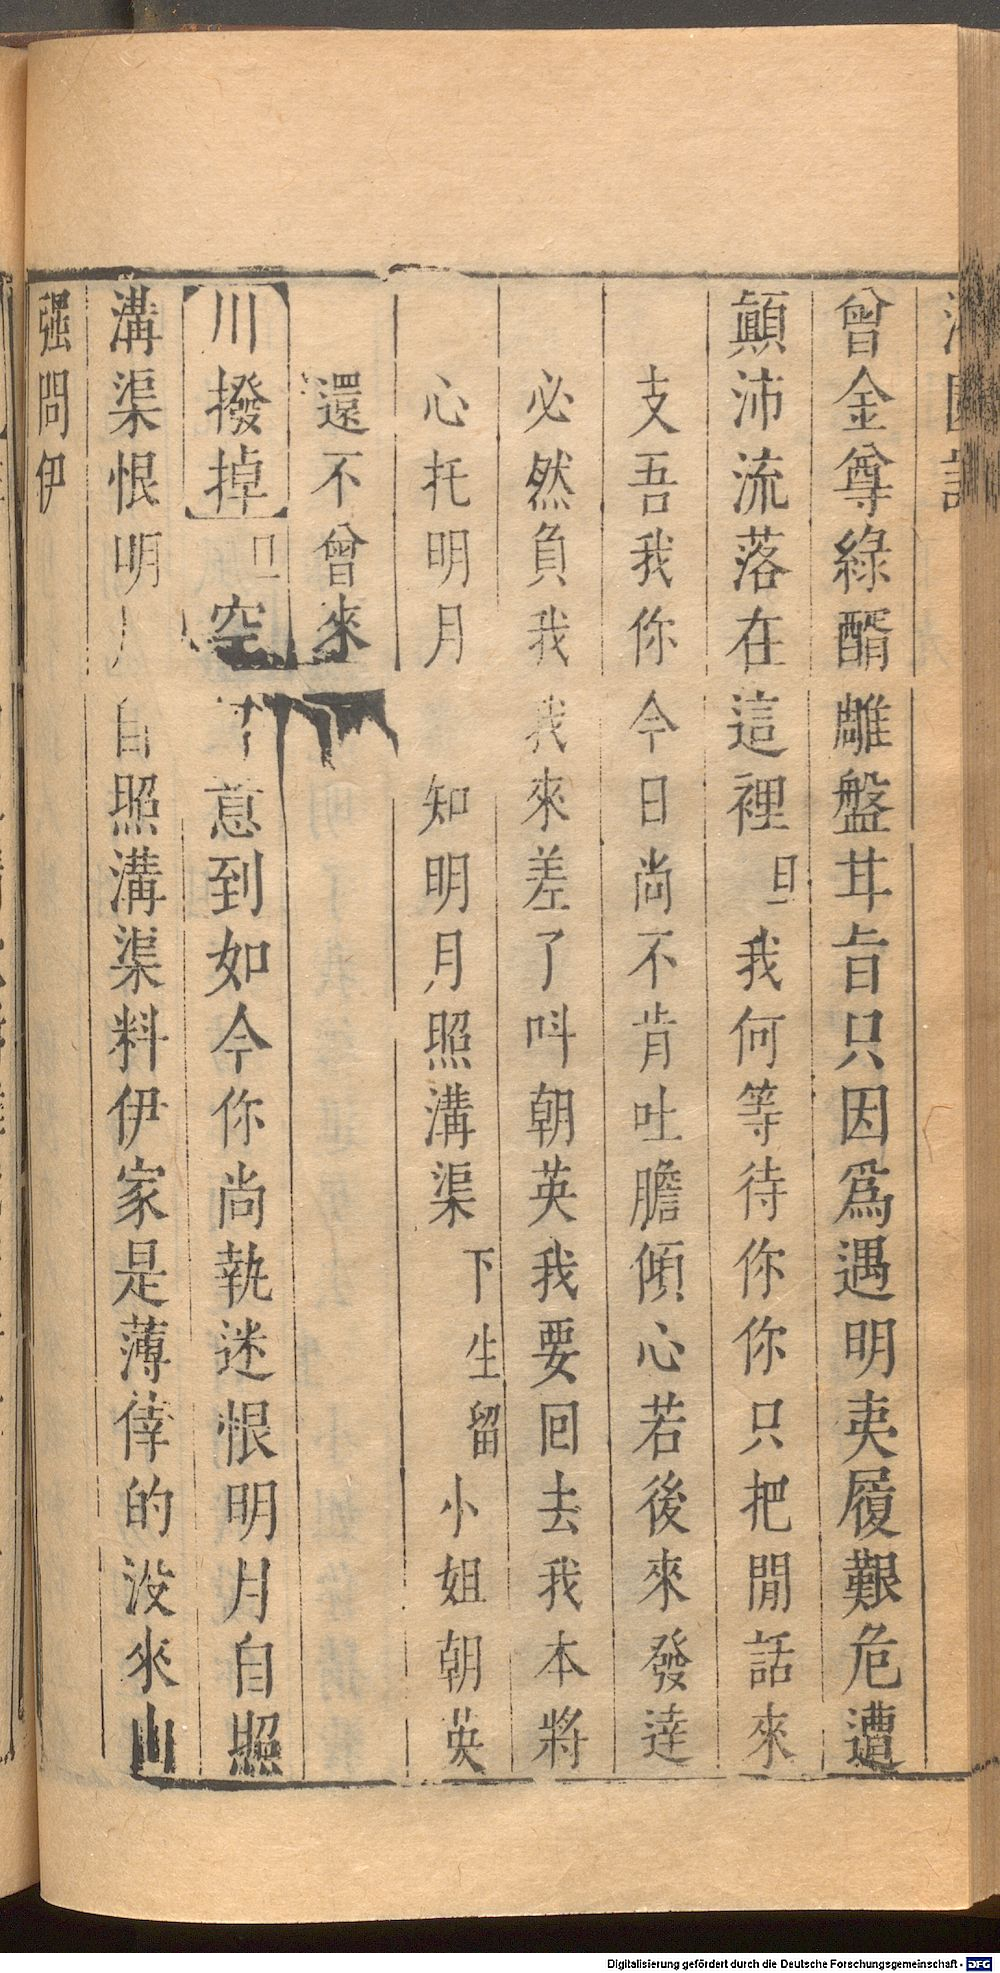 曾金尊綠醑雕盤甘旨只因爲遇明夷履艱危遭
顛沛流落在這裡旦我何等待你你只把閒話來
支吾我你今日尚不肯吐膽傾心若後來發達
必然負我我來差了呌朝英我要回去我本將
心托明月知明月照溝渠下生留小姐朝英
還不曾來
川撥掉旦空意到如今你尚執迷恨明月自照
溝渠恨明自照溝渠料伊家是薄倖的没來山
强問伊
Digitalisierung gefördert durch die Deutsche Forschungsgemeinschaft - DFG